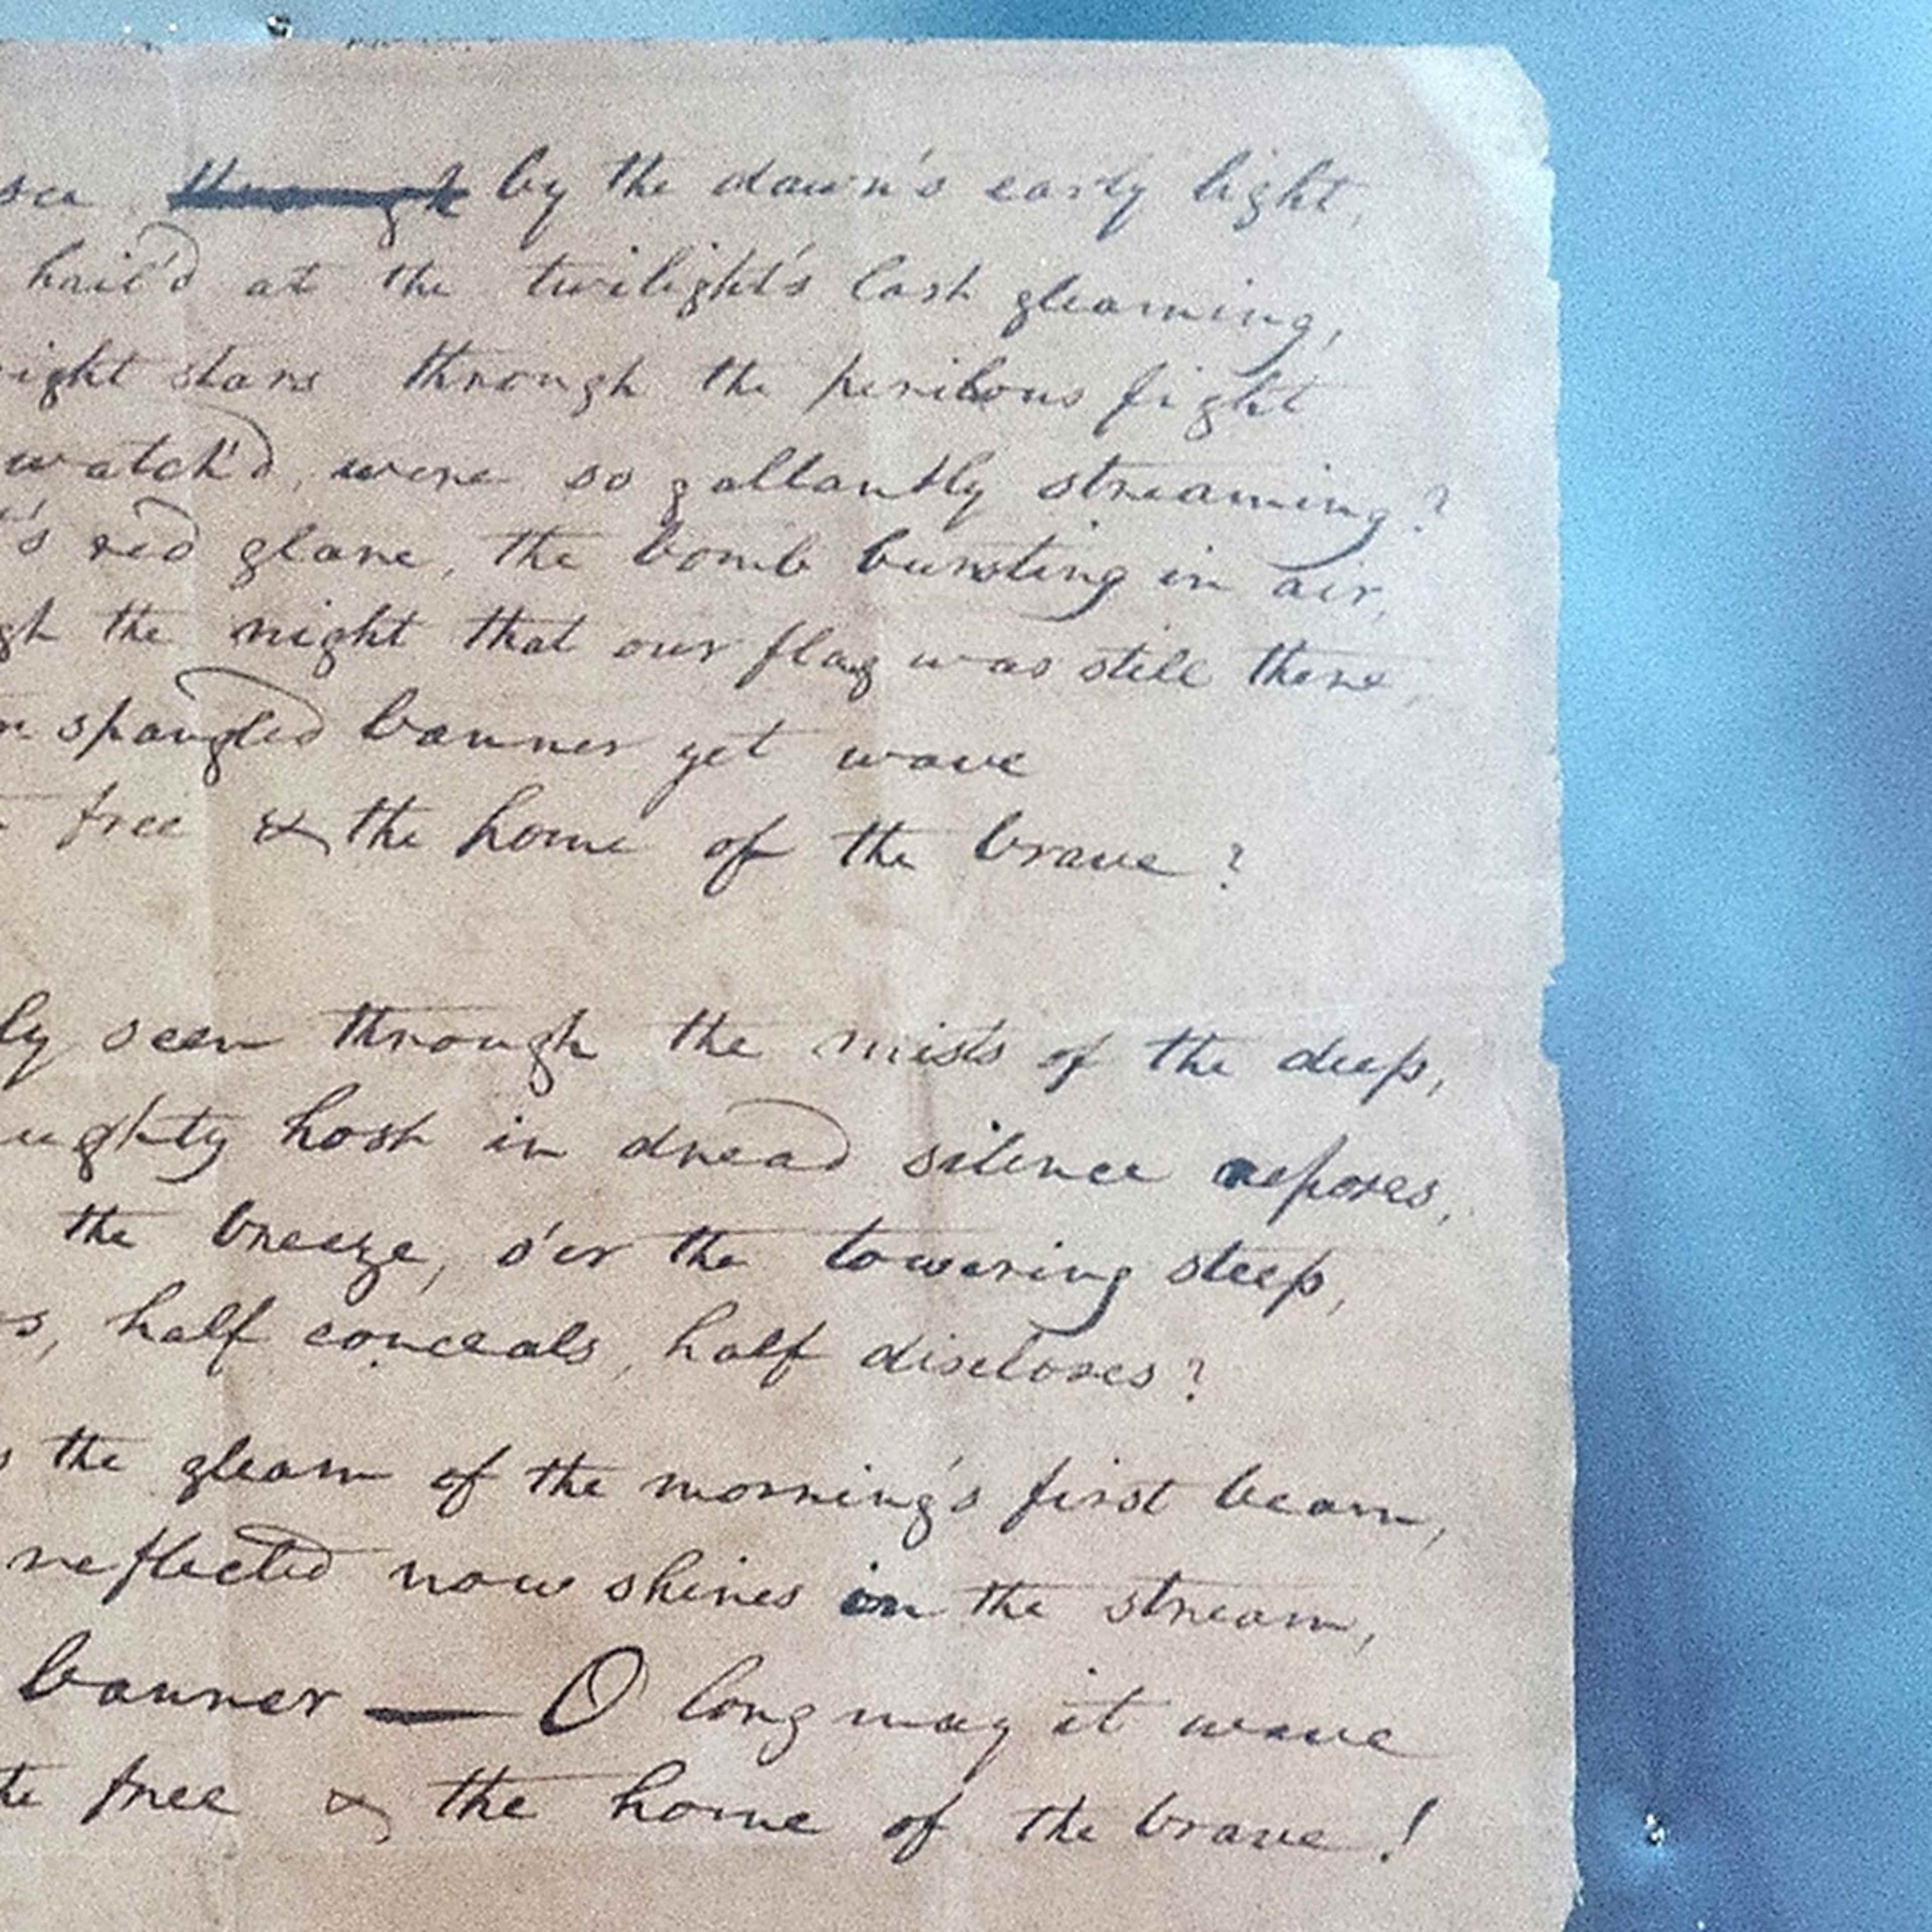 see through by the dawn's early light,
hail'd at the twilight's last gleaming,
right stars through the perilous fight
watch'd, were so gallantly streaming?
's red glare, the bomb bursting in air,
gh the night that our flag was still there,
spangled banner yet wave
free & the home of the brave?
ly seen through the mists of the deep,
aughty host in dread silence reposes,
the breeze, o'er the towering steep,
s, half conceals, half discloses?
s the gleam of the morning's first beam,
reflected now shines in the stream,
banner — O long may it wave
the free & the home of the brave!